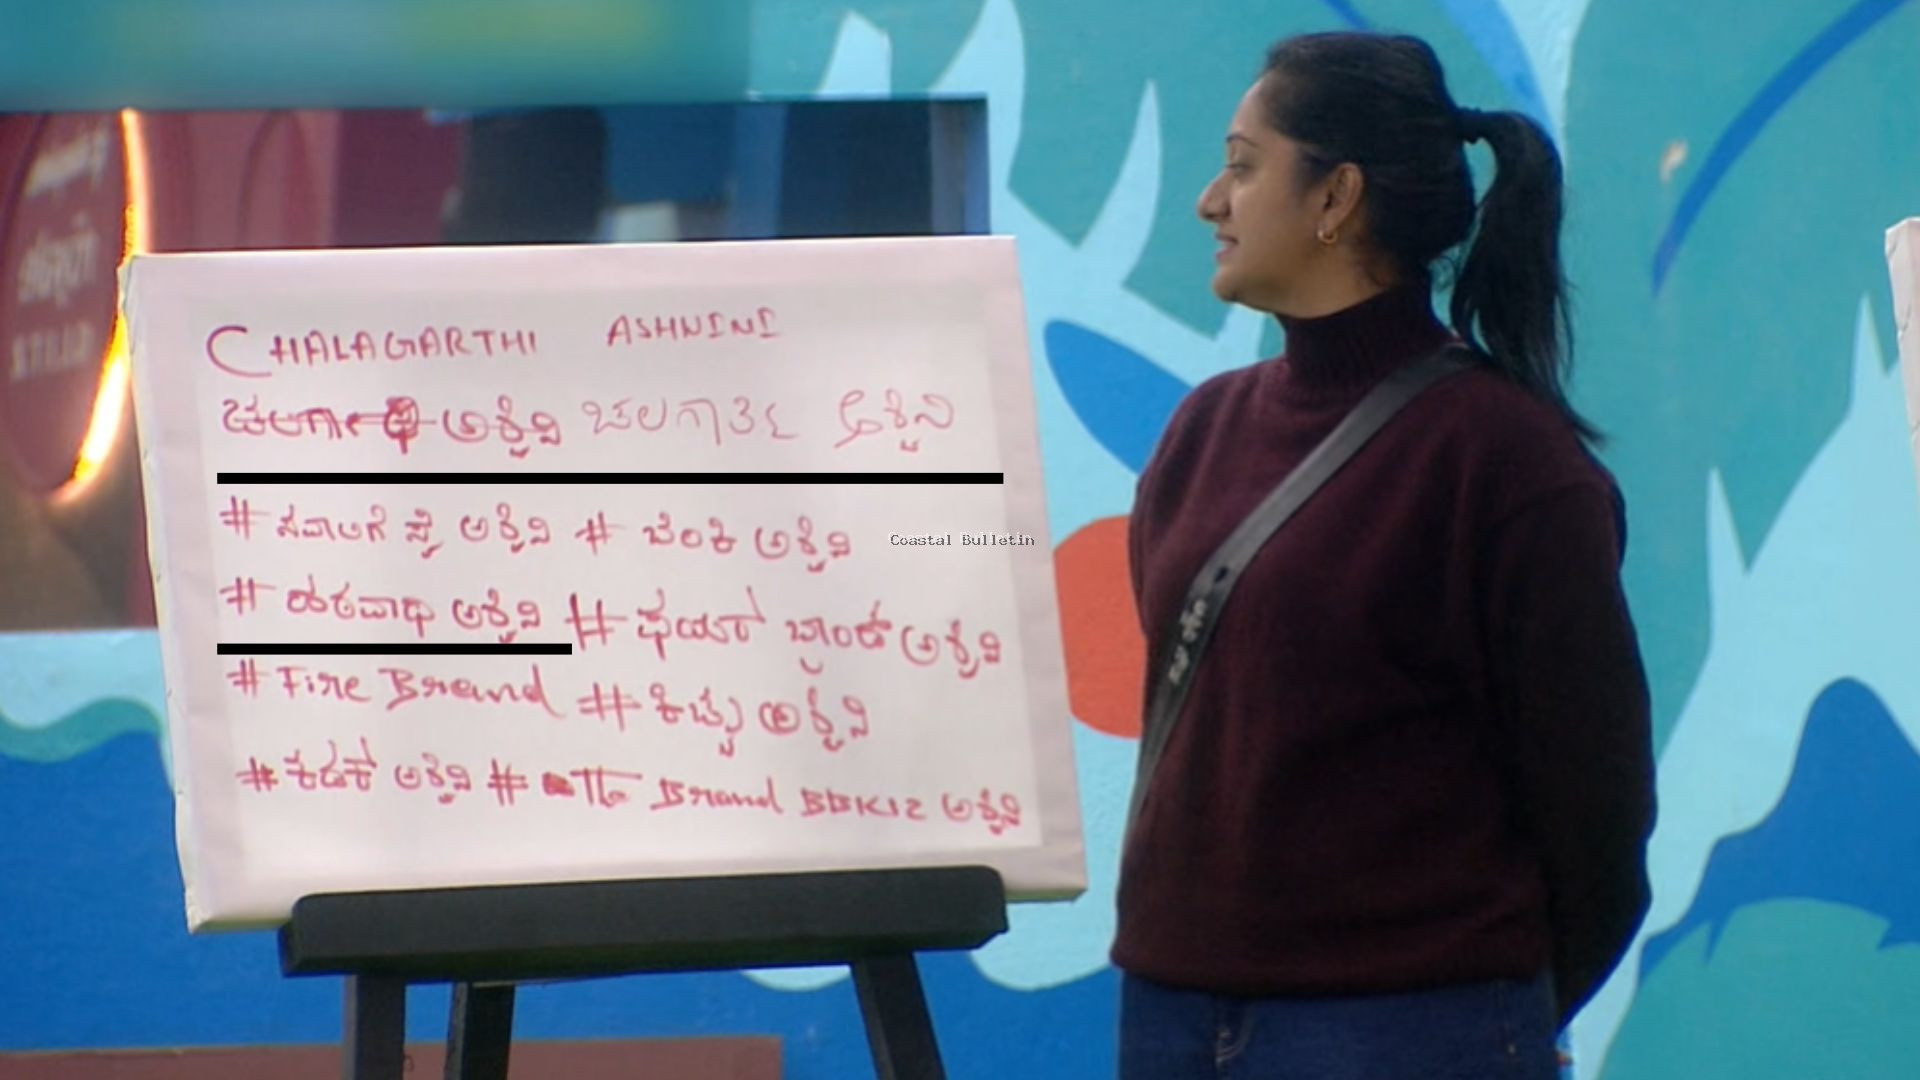 CHALAGARTHI ASHWINI
ಅಶ್ವಿನಿ ಚಲಗಾರ್ತಿ ಅಶ್ವಿನಿ
# ಸವಾಲಿಗೆ ಸೈ ಅಶ್ವಿನಿ # ಬೆಂಕಿ ಅಶ್ವಿನಿ
Coastal Bulletin
# ಹಠವಾಧಿ ಅಶ್ವಿನಿ # ಫಯರ್ ಬ್ರಾಂಡ್ ಅಶ್ವಿನಿ
# Fire Brand # ಕಿಚ್ಚು ಅಶ್ವಿನಿ
# ಕಡಕ್ ಅಶ್ವಿನಿ # The Brand BBK12 ಅಶ್ವಿನಿ